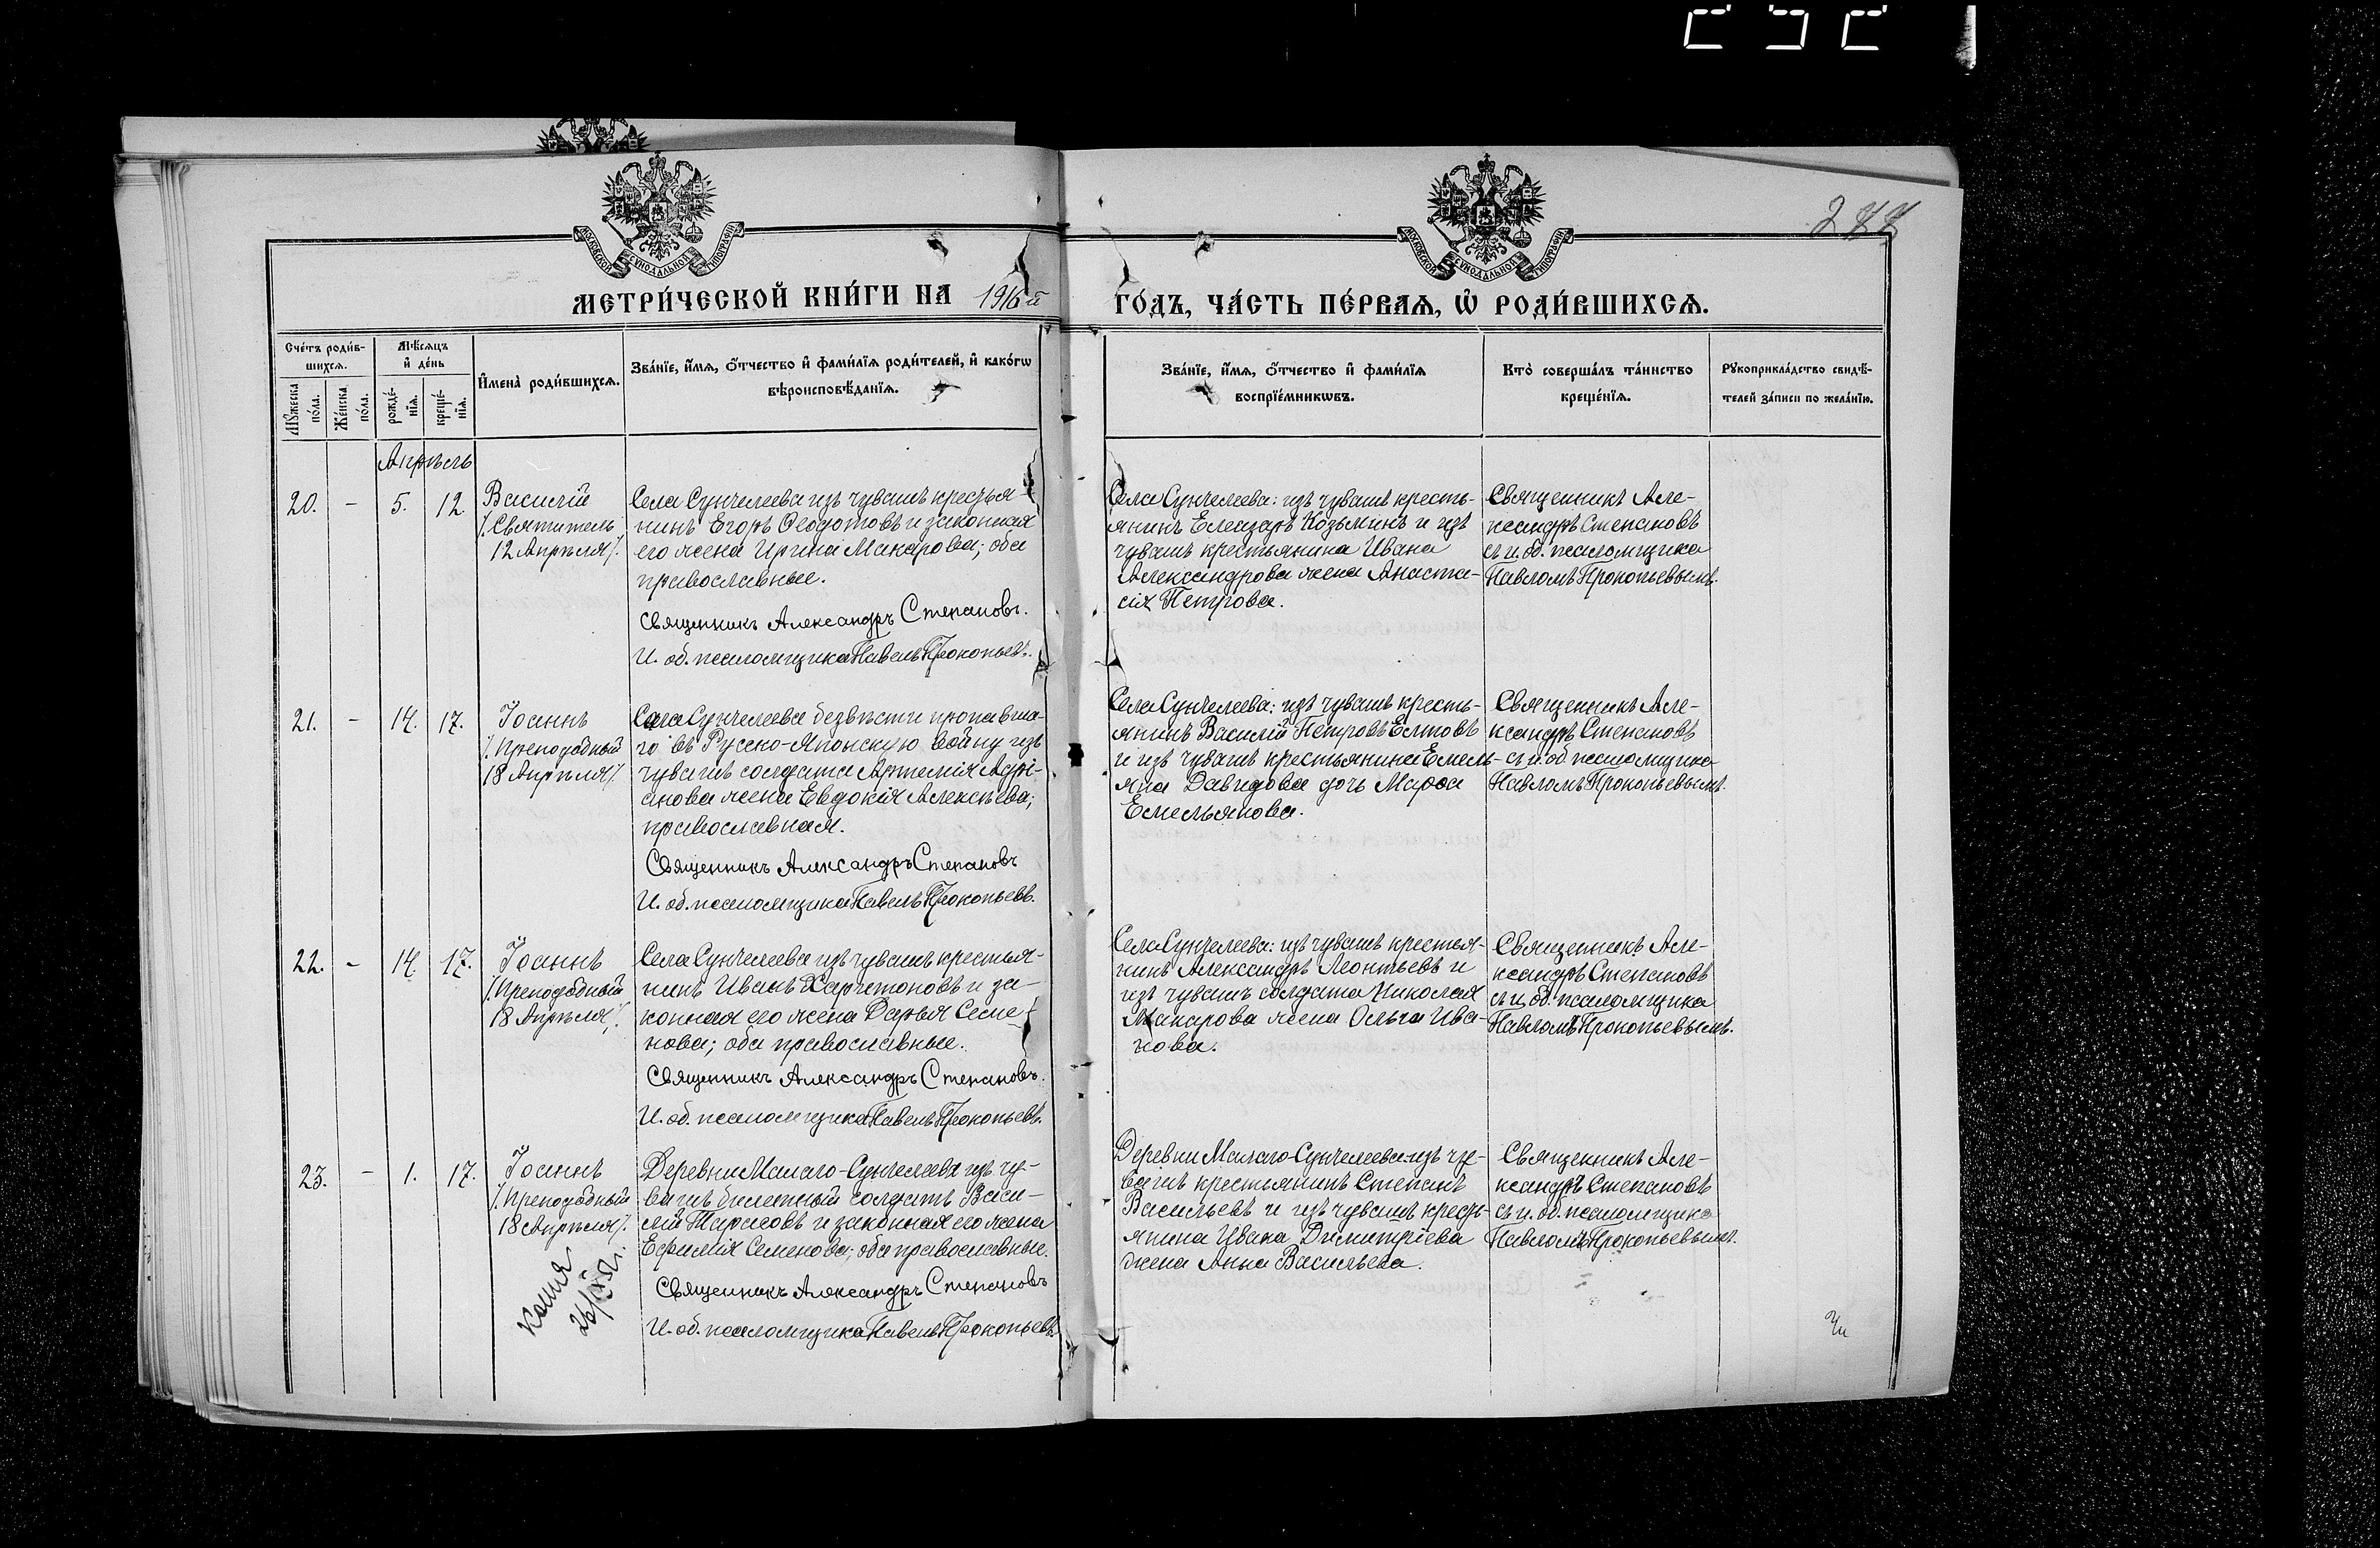 288
МОСКОВСКОЙ СУНОДАЛЬНОЙ ТИПОГРАФІИ
МОСКОВСКОЙ СУНОДАЛЬНОЙ ТИПОГРАФІИ
МЕТРИ́ЧЕСКОЙ КНИ́ГИ НА 1916 й ГО́ДЪ, ЧА́СТЬ ПЕ́РВАѦ, Ѡ РОДИ́ВШИХСѦ.
Сче́тъ роди́в-
шихсѧ.
Мꙋжеска по́ла.
Же́нска по́ла.
Мѣ́сѧцъ
и҆ де́нь
рожде́-
нїѧ.
креще́-
нїѧ.
И҆мена̀ роди́вшихсѧ.
Зва́нїе, и҆́мѧ, ѻ҆́тчество и҆ фами́лїѧ роди́телей, и҆ како́гѡ
вѣроисповѣ́данїѧ.
Зва́нїе, и҆́мѧ, ѻ҆́тчество и҆ фами́лїѧ
воспрїе́мникѡвъ.
Кто̀ соверша́лъ та́инство
креще́нїѧ.
Рꙋкоприкла́дство свидѣ́-
телей за́писи по жела́нїю.
Апрѣль
20.
-
5.
12
Василій
/. Святитель
12 Апрѣля /.
Села Сунчелеева изъ чувашъ крестья-
нинъ Егоръ Ѳеодотовъ и законная
его жена Ирина Макарова; оба
православные.
Священникъ Александръ Степановъ.
И. об. псаломщика Павелъ Прокопьевъ.
Села Сунчелеева: изъ чувашъ кресть-
янинъ Елеазаръ Козьминъ и изъ
чувашъ крестьянина Ивана
Александрова жена Анаста-
сія Петрова.
Священникъ Але-
ксандръ Степановъ
съ и. об. псаломщика
Павломъ Прокопьевымъ.
21.
-
14.
17.
Іоаннъ
/. Преподобный
18 Апрѣля /.
Села Сунчелеева безвѣсти пропавша-
го въ Русско-Японскую войну изъ
чувашъ солдата Артемія Адрі-
анова жена Евдокія Алексѣева;
православная.
Священникъ Александръ Степановъ
И. об. псаломщика Павелъ Прокопьевъ.
Села Сунчелеева: изъ чувашъ кресть-
янинъ Василій Петровъ Елтовъ
и изъ чувашъ крестьянина Емель-
яна Давидова дочь Марѳа
Емельянова.
Священникъ Але-
ксандръ Степановъ
съ и. об псаломщика
Павломъ Прокопьевымъ.
22.
-
14
17.
Іоаннъ
/. Преподобный
18 Апрѣля /.
Села Сунчелеева изъ чувашъ крестья-
нинъ Иванъ Харитоновъ и за-
конная его жена Дарья Семе-
нова; оба православные.
Священникъ Александръ Степановъ.
И. об. псаломщика Павелъ Прокопьевъ.
Села Сунчелеева: изъ чувашъ крестья-
нинъ Александръ Леонтьевъ и
изъ чувашъ солдата Николая
Макарова жена Ольга Ива-
нова.
Священникъ Але-
ксандръ Степановъ
съ и. об. псаломщика
Павломъ Прокопьевымъ.
23.
-
1.
17.
Іоаннъ
/. Преподобный
18 Апрѣля /.
Копія
Деревни Малаго-Сунчелеева изъ чу-
вашъ билетный солдатъ Васи-
лій Тарасовъ и законная его жена
Евѳимія Семенова; оба православные.
Священникъ Александръ Степановъ
И. об. псаломщика Павелъ Прокопьевъ
Деревни Малаго-Сунчелеева изъ чу-
вашъ крестьянинъ Степанъ
Васильевъ и изъ чувашъ кресть-
янина Ивана Димитріева
жена Анна Васильева.
Священникъ Але-
ксандръ Степановъ
съ и. об. псаломщика
Павломъ Прокопьевымъ.